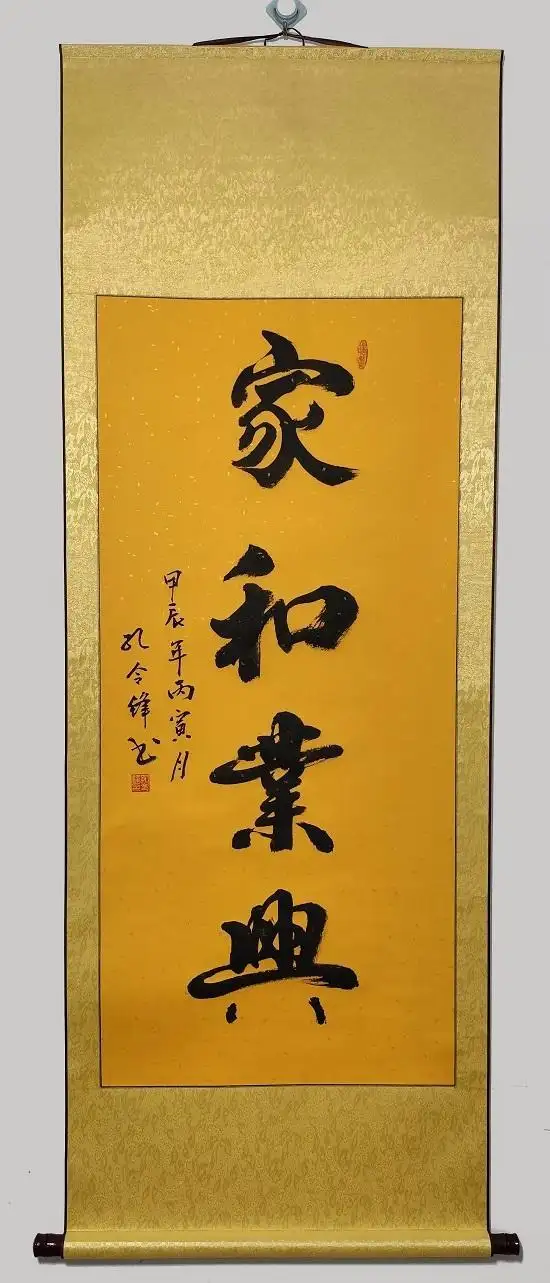 家和業興
甲辰年丙寅月
孔令鋒书